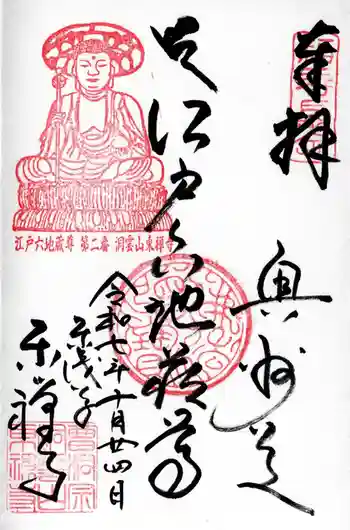 奉拝
奥州道
江戸六地蔵尊
令和七年十月廿四日
東浅草
東禅寺
江戸六地蔵尊 第二番 洞雲山東禅寺